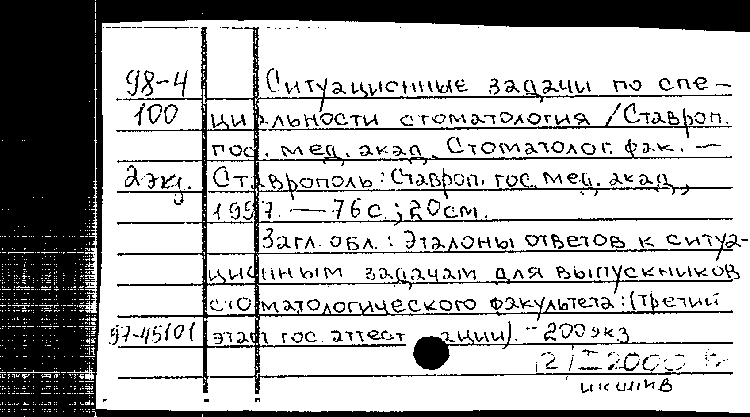 98-4 Ситуационные задачи по спе-
100 циальности стоматология / Ставроп.
гос. мед. акад. Стоматолог. фак. —
2 экз. Ставрополь: Ставроп. гос. мед. акад.,
1997. — 76 с.; 20 см.
Загл. обл.: Эталоны ответов к ситуа-
ционным задачам для выпускников
стоматологического факультета: (третий
97-45101 этап гос. аттестации). - 200 экз
2000